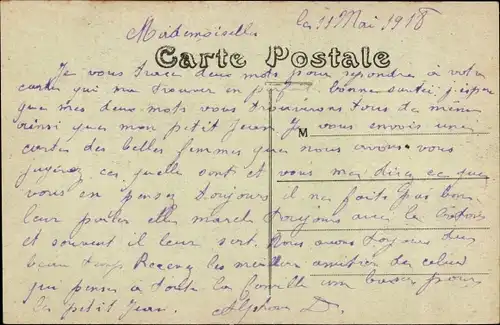 le 11 Mai 1918
Mademoiselle
Carte Postale
Je vous trace deux mots pour repondre à votre
carte qui ma trouver en bonne santé. j'espere
que mes deux mots vous trouverons tous de même
ainsi que mon petit Jean. Je vous envois une
M
cartes des belles femmes que nous avons vous
jugérez ces quelle sont et vous me direz ce que
vous en pensez Toujours il ne faits pas bon
leur parler elle marche toujours avec le
et souvent il leur sert. Nous avons toujours du
beau temps Recevez les meilleur amitier de celui
qui pense à toute la famille un baiser pour
le petit Jean. Alphonse D.